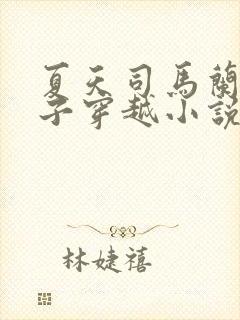 夏天司馬蘭
子穿越小說
林婕禧